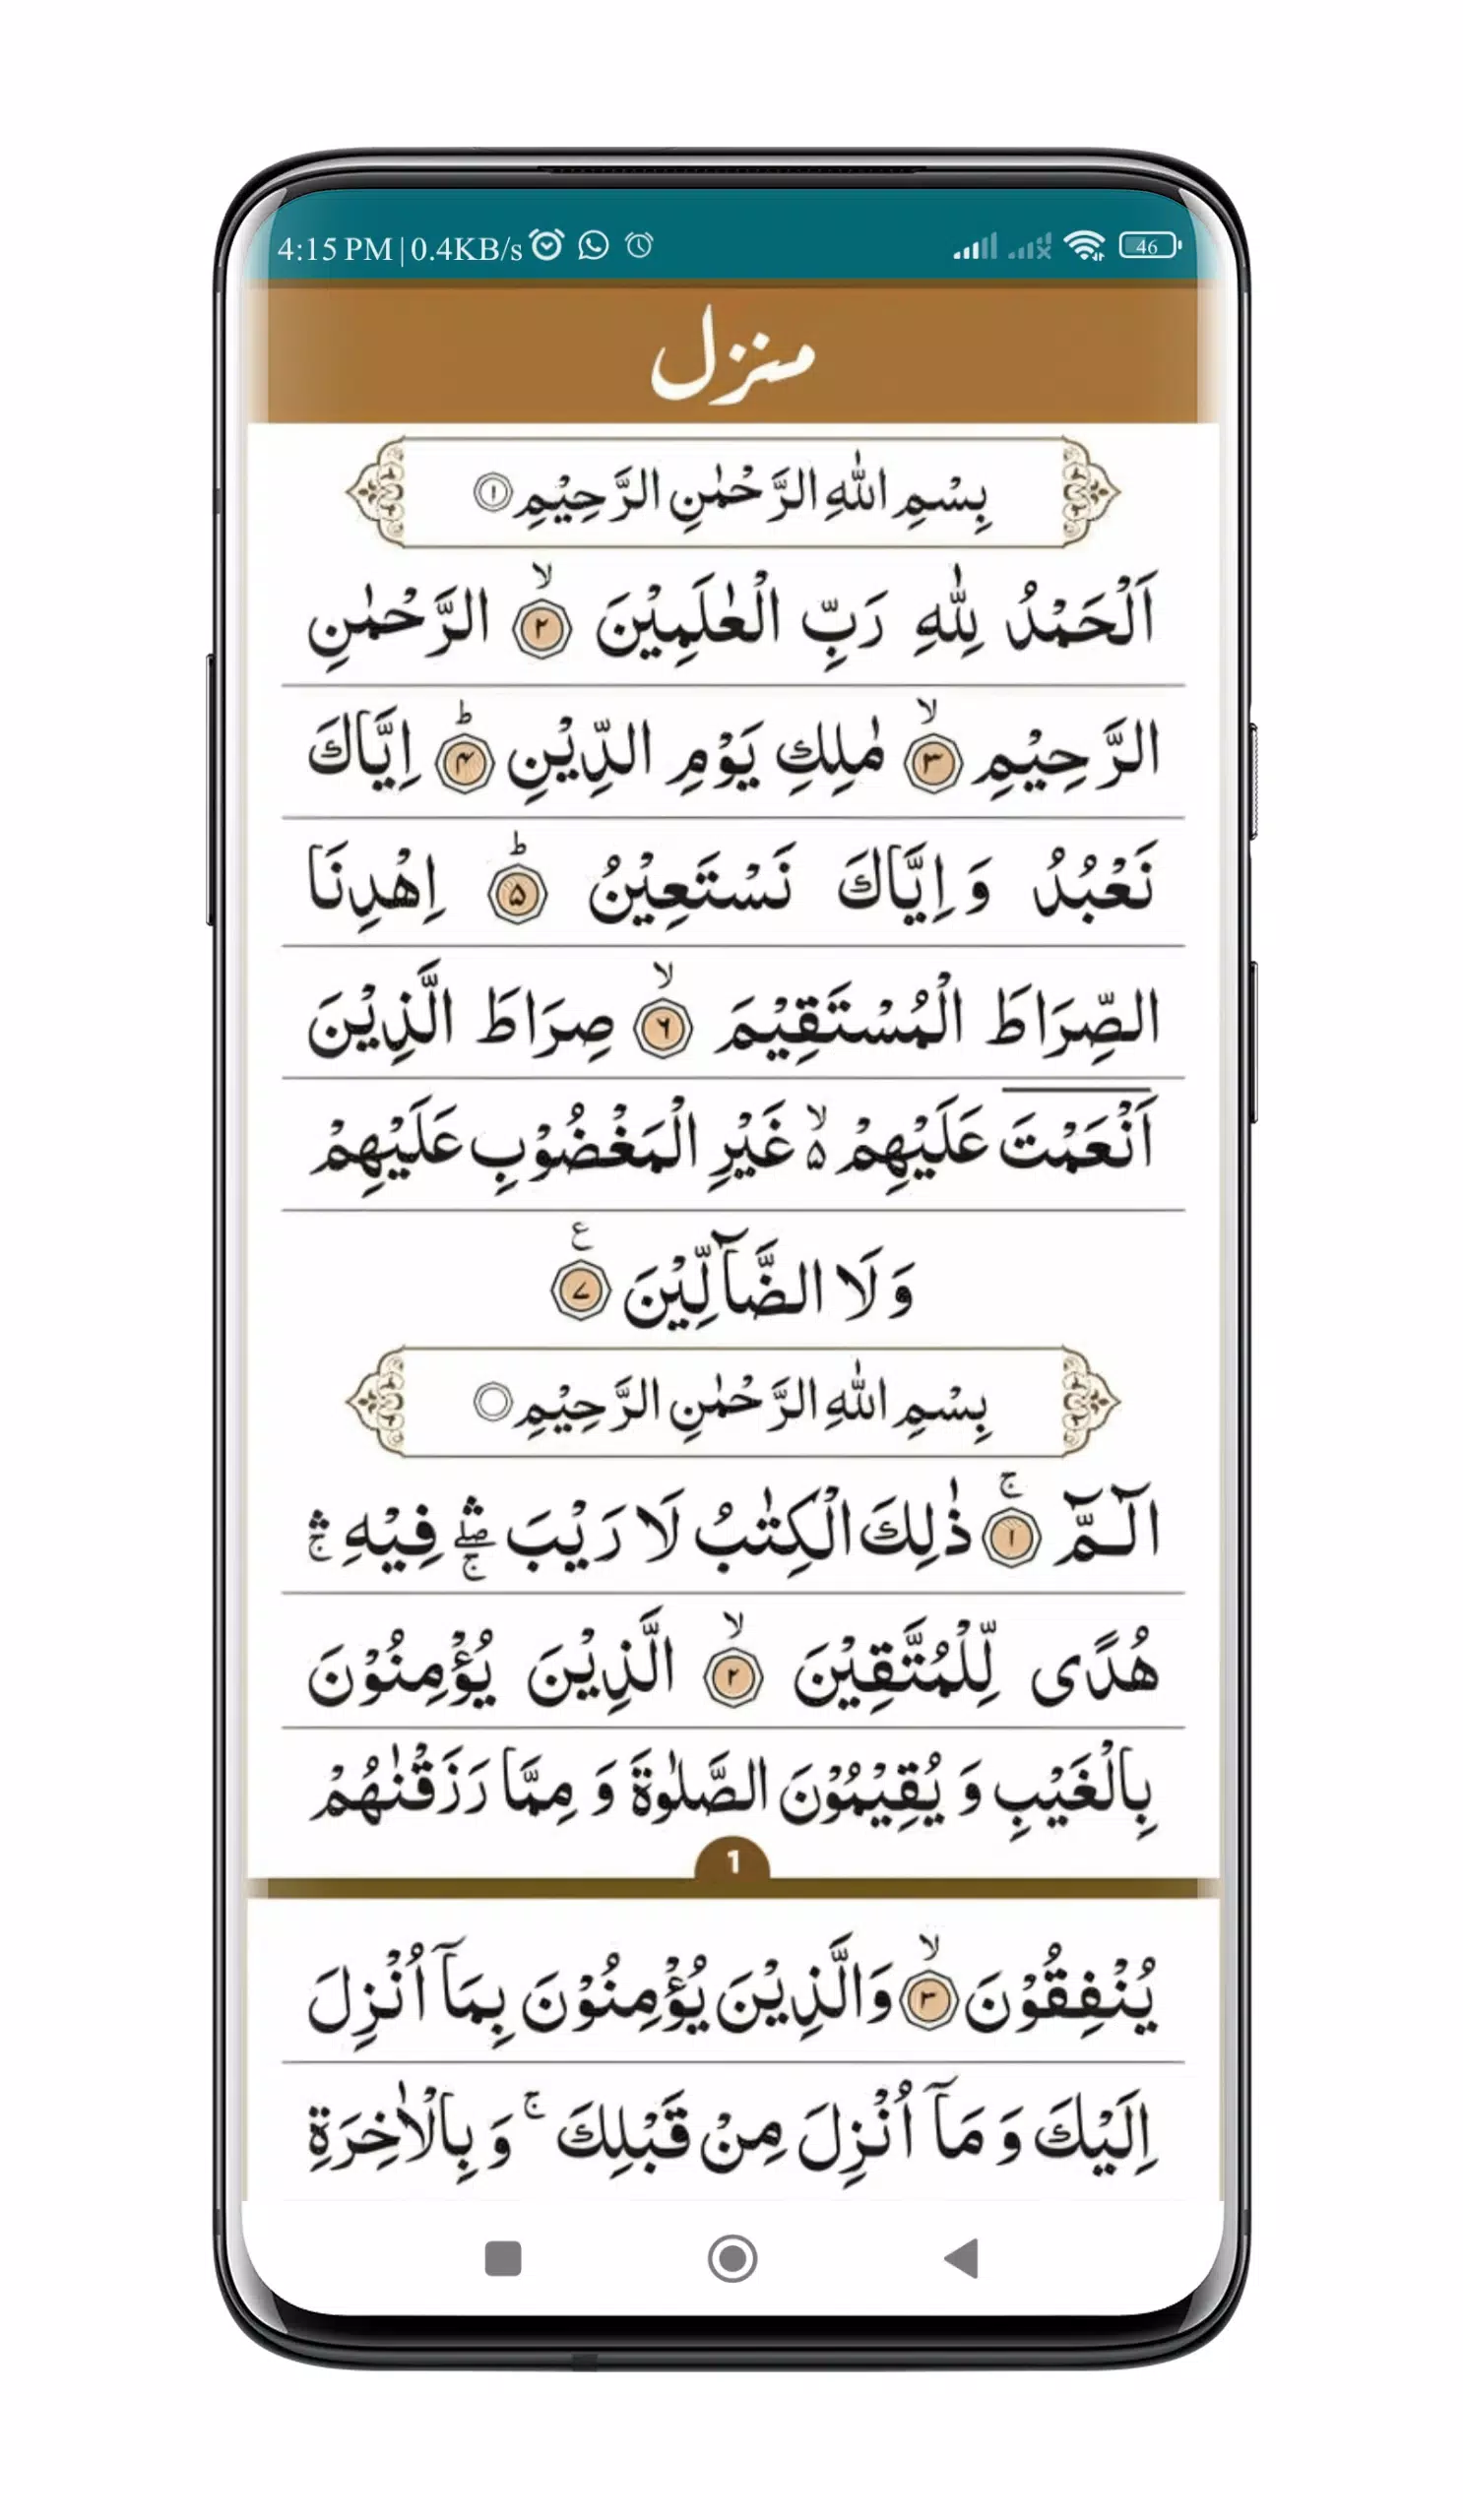 4:15 PM | 0.4KB/s 46
منزل
بِسْمِ اللهِ الرَّحْمٰنِ الرَّحِيْمِ ۝۱
اَلْحَمْدُ لِلّٰهِ رَبِّ الْعٰلَمِيْنَ ۝۲ۙ الرَّحْمٰنِ
الرَّحِيْمِ ۝۳ۙ مٰلِكِ يَوْمِ الدِّيْنِ ۝۴ؕ اِيَّاكَ
نَعْبُدُ وَ اِيَّاكَ نَسْتَعِيْنُ ۝۵ؕ اِهْدِنَا
الصِّرَاطَ الْمُسْتَقِيْمَ ۝۶ۙ صِرَاطَ الَّذِيْنَ
اَنْعَمْتَ عَلَيْهِمْ ۵ۙ غَيْرِ الْمَغْضُوْبِ عَلَيْهِمْ
وَ لَا الضَّآلِّيْنَ ۝۷ع
بِسْمِ اللهِ الرَّحْمٰنِ الرَّحِيْمِ ۝
الٓمّٓ ۝۱ۚ ذٰلِكَ الْكِتٰبُ لَا رَيْبَ ۛۖۚ فِيْهِ ۛۚ
هُدًى لِّلْمُتَّقِيْنَ ۝۲ۙ الَّذِيْنَ يُؤْمِنُوْنَ
بِالْغَيْبِ وَ يُقِيْمُوْنَ الصَّلٰوةَ وَ مِمَّا رَزَقْنٰهُمْ
1
يُنْفِقُوْنَ ۝۳ۙ وَالَّذِيْنَ يُؤْمِنُوْنَ بِمَآ اُنْزِلَ
اِلَيْكَ وَ مَآ اُنْزِلَ مِنْ قَبْلِكَ ۚ وَ بِالْاٰخِرَةِ